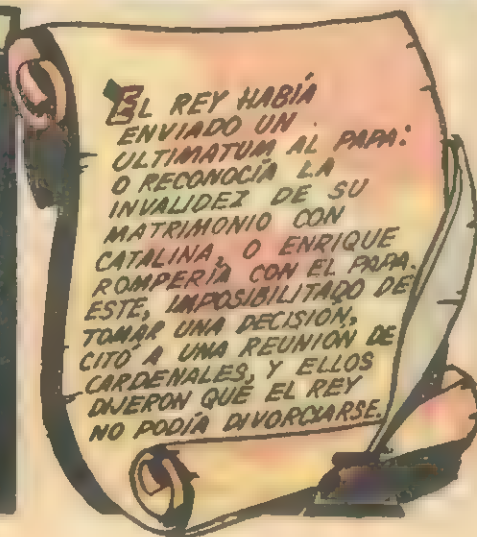 EL REY HABÍA
ENVIADO UN
ULTIMATUM AL PAPA:
O RECONOCÍA LA
INVALIDEZ DE SU
MATRIMONIO CON
CATALINA, O ENRIQUE
ROMPERÍA CON EL PAPA.
ESTE, IMPOSIBILITADO DE
TOMAR UNA DECISIÓN,
CITÓ A UNA REUNIÓN DE
CARDENALES, Y ELLOS
DIJERON QUE EL REY
NO PODÍA DIVORCIARSE.